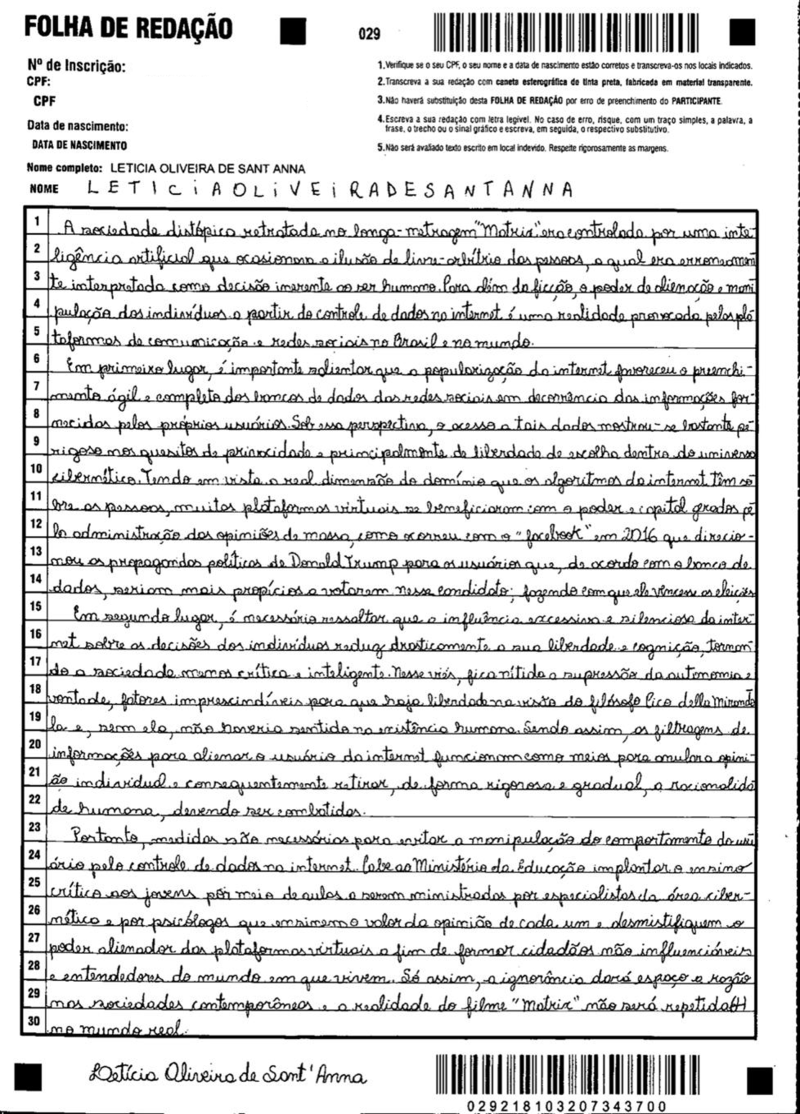 FOLHA DE REDAÇÃO
029
Nº de Inscrição:
CPF:
CPF
Data de nascimento:
DATA DE NASCIMENTO
Nome completo: LETICIA OLIVEIRA DE SANT ANNA
NOME LETICIAOLIVEIRADESANTANNA
1.Verifique se o seu CPF, o seu nome e a data de nascimento estão corretos e transcreva-os nos locais indicados.
2.Transcreva a sua redação com caneta esferográfica de tinta preta, fabricada em material transparente.
3.Não haverá substituição desta FOLHA DE REDAÇÃO por erro de preenchimento do PARTICIPANTE.
4.Escreva a sua redação com letra legível. No caso de erro, risque, com um traço simples, a palavra, a
frase, o trecho ou o sinal gráfico e escreva, em seguida, o respectivo substitutivo.
5.Não será avaliado texto escrito em local indevido. Respeite rigorosamente as margens.
1 A sociedade distópica retratada no longa-metragem "Matrix" era controlada por uma inte
2 ligência artificial que ocasionava a ilusão de livre-arbítrio das pessoas, a qual era erroneamen
3 te interpretada como decisão inerente ao ser humano. Para além da ficção, o poder de alienação e mani
4 pulação dos indivíduos a partir do controle de dados na internet é uma realidade provocada pelas pla
5 taformas de comunicação e redes sociais no Brasil e no mundo.
6 Em primeiro lugar, é importante salientar que a popularização da internet favoreceu o preenchi-
7 mento ágil e completo dos bancos de dados das redes sociais em decorrência das informações for-
8 necidas pelos próprios usuários. Sob essa perspectiva, o acesso a tais dados mostrou-se bastante pe
9 rigoso nos quesitos de privacidade e principalmente de liberdade de escolha dentro do universo
10 cibernético. Tendo em vista a real dimensão do domínio que os algoritmos da internet têm so
11 bre as pessoas, muitas plataformas virtuais se beneficiaram com o poder e capital gerados pe
12 la administração das opiniões de massa, como ocorreu com o "facebook" em 2016 que direcio-
13 nou as propagandas políticas de Donald Trump para os usuários que, de acordo com o banco de
14 dados, seriam mais propícios a votarem nesse candidato; fazendo com que ele vencesse as eleições
15 Em segundo lugar, é necessário ressaltar que a influência excessiva e silenciosa da inter
16 net sobre as decisões dos indivíduos reduz drasticamente a sua liberdade e cognição, tornan
17 do a sociedade menos crítica e inteligente. Nesse viés, fica nítida a supressão da autonomia e
18 vontade, fatores imprescindíveis para que haja liberdade na visão do filósofo Pico della Mirando
19 la e, sem ela, não haveria sentido na existência humana. Sendo assim, as filtragens de
20 informações para alienar o usuário da internet funcionam como meios para anular a opini-
21 ão individual e consequentemente retirar, de forma rigorosa e gradual, a racionalida
22 de humana, devendo ser combatidas.
23 Portanto, medidas são necessárias para evitar a manipulação do comportamento do usu
24 ário pelo controle de dados na internet. Cabe ao Ministério da Educação implantar o ensino
25 crítico aos jovens por meio de aulas a serem ministradas por especialistas da área ciber-
26 nética e por psicólogos que ensinem o valor da opinião de cada um e desmistifiquem o
27 poder alienador das plataformas virtuais a fim de formar cidadãos não influenciáveis
28 e entendedores do mundo em que vivem. Só assim, a ignorância dará espaço a razão
29 nas sociedades contemporâneas e a realidade do filme "Matrix" não será repetida
30 no mundo real.
Letícia Oliveira de Sant'Anna
0292181032073437​00